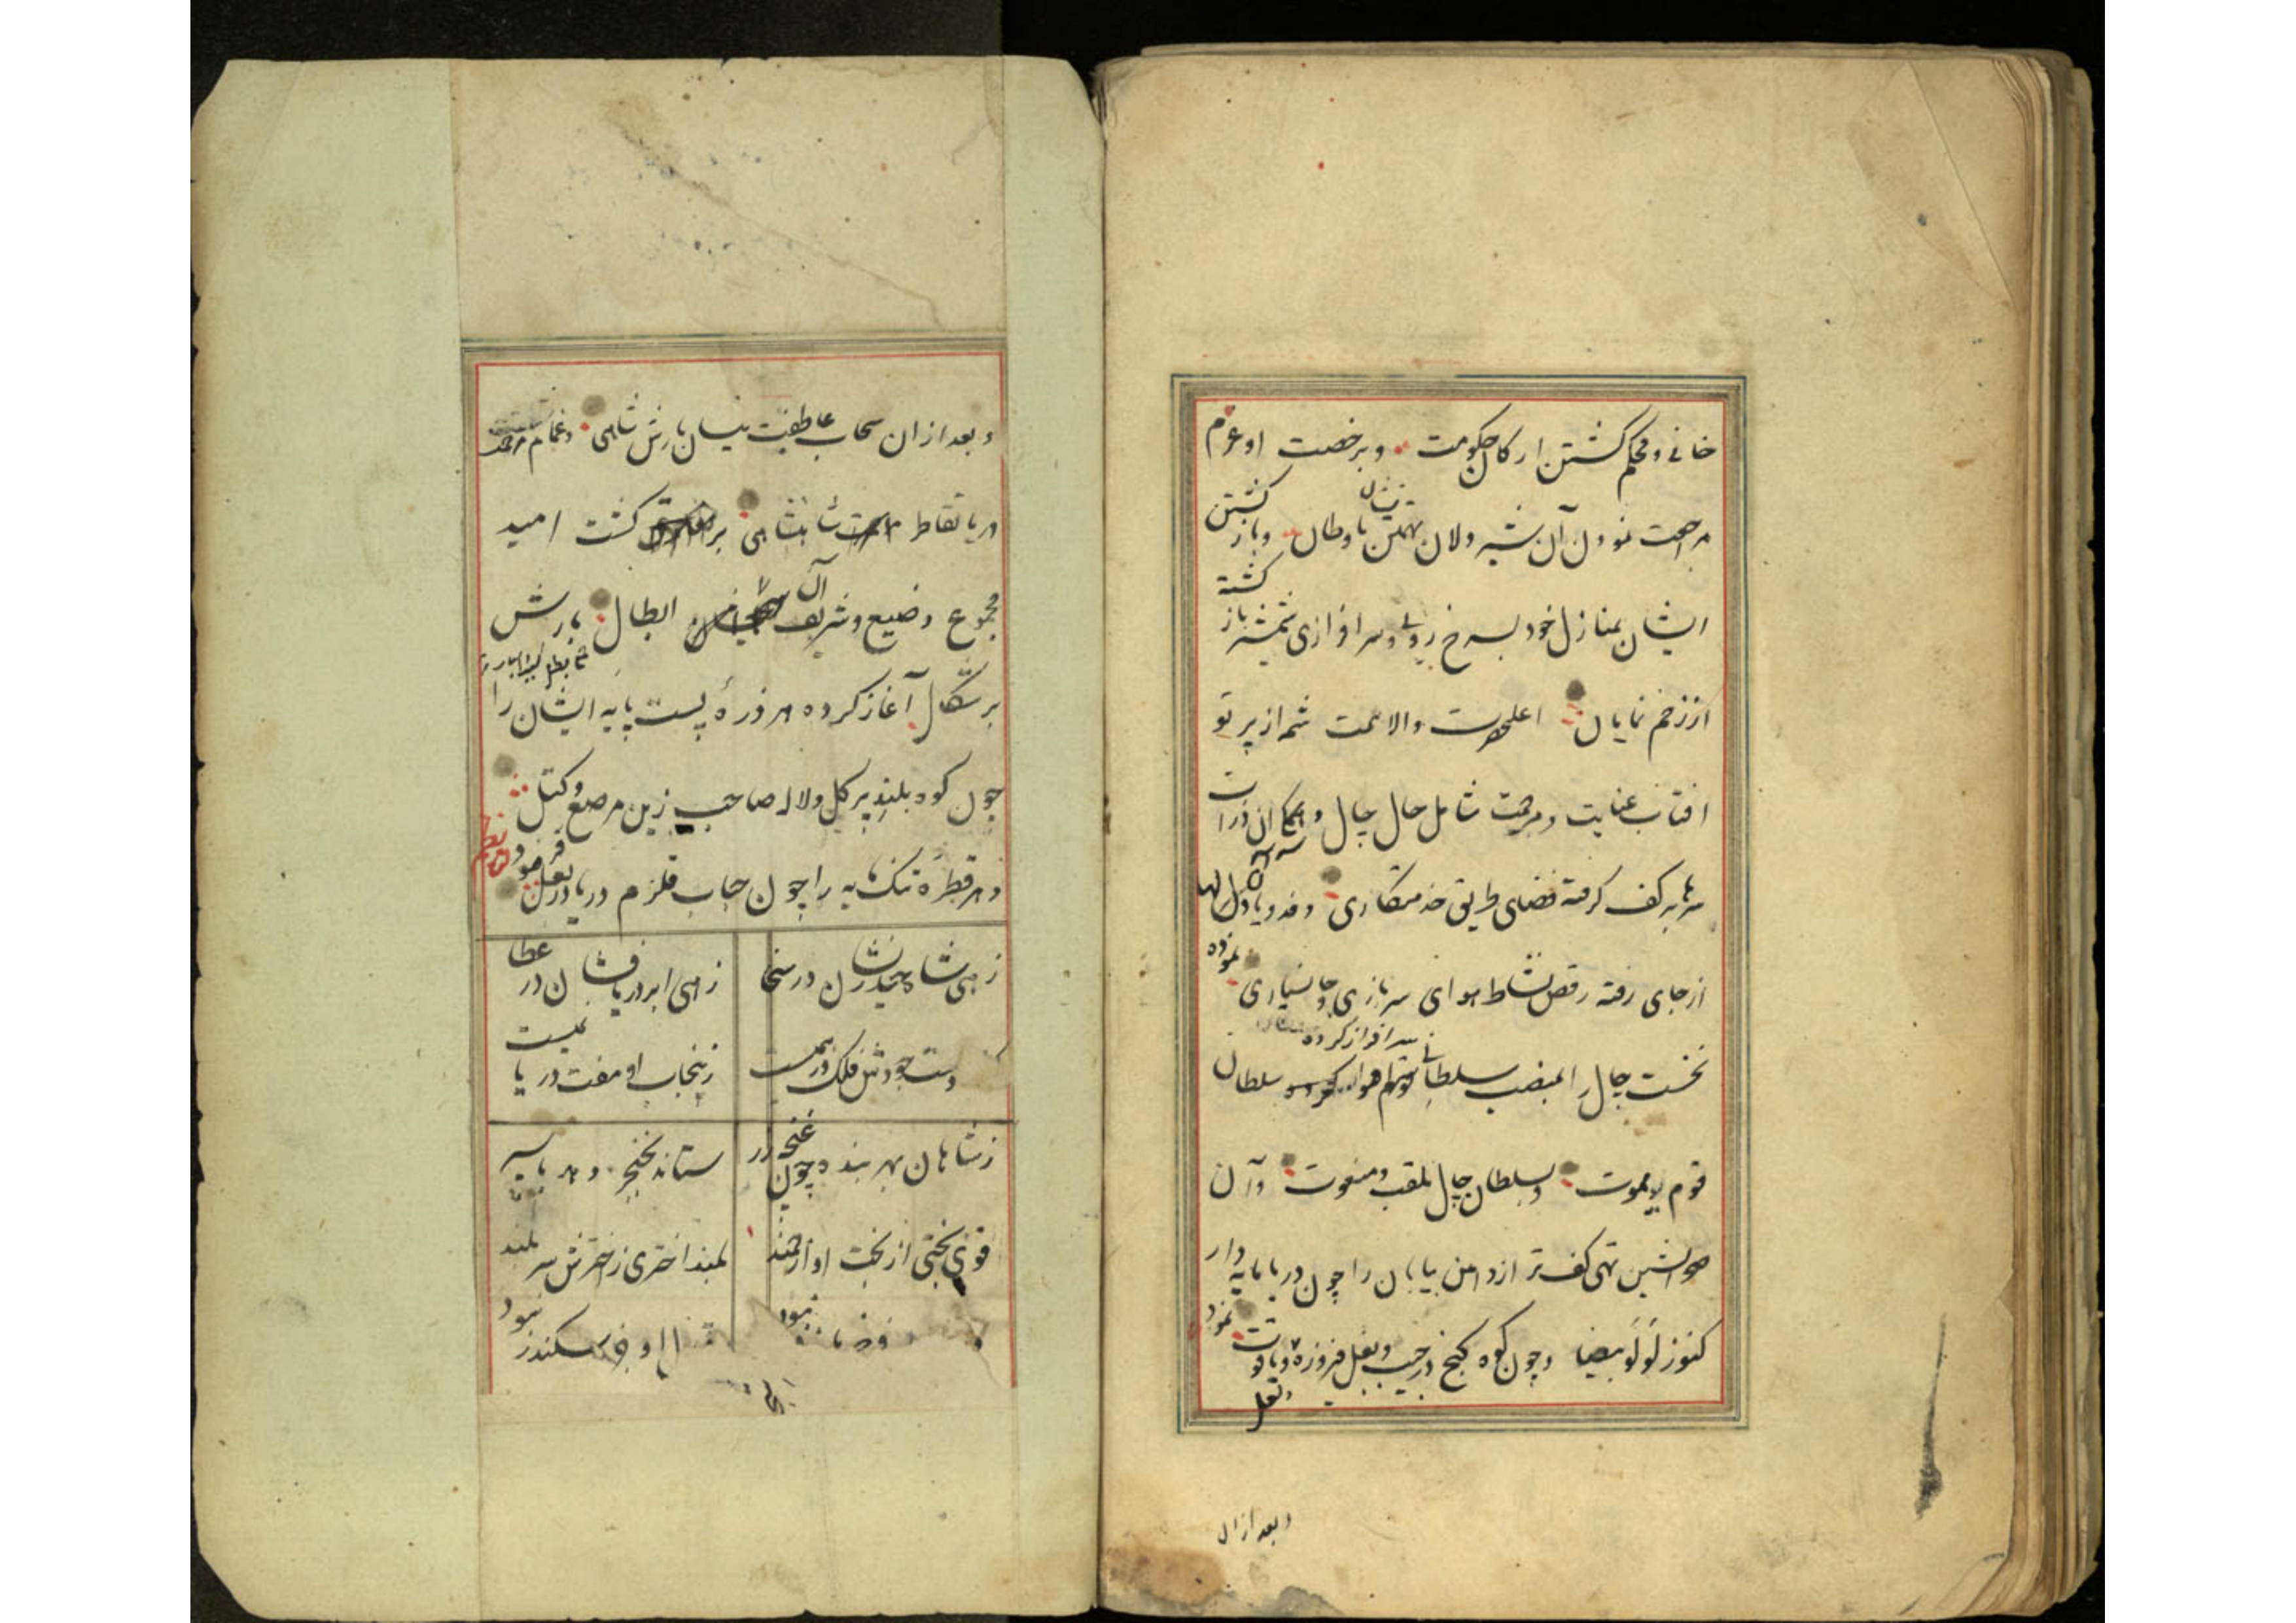 خانی و محکم گشتن ارکان حکومت و برخصت او عزم
مراجعت نمودن آن شیر دلان تهمتن نشان باوطان و باز گشتن
ایشان بمنازل خود بسرخ رویی و سرافرازی شمشیر باز گشته
از زخم نمایان اعلحضرت والا همت شمه از پرتو
افتاب عنایت و مرحمت شامل حال چپال و ان ذرات
سرها بر کف گرفته فضای طریق خدمتکاری و فدویا
از جای رفته رقص نشاط هوای سربازی و جانسپاری نموده
نخست چپال را بمنصب سلطانی سرافراز کرده سلطان
قوم یموت و بسلطان چپال ملقب و منعوت و آن
صحرانشین تهی کف تر از دامن بیابان را چون دریا مایه دار
کنوز لولو بیضا و چون کوه گنج در جیب و بغل فیروزه و یاقوت و لعل نمود
و بعد ازان
و بعد ازان سحاب عاطفت نیسان بارش شاهی و غمام
دریا تقاطر شاهنشاهی بر گشت امید
مجموع وضیع و شریف آن ابطال بارش
برشگال آغاز کرده هر ذرهٔ پست پایه ایشان را
چون کوه بلند پر گل و لاله صاحب زین مرصع و کتل
و هر قطرهٔ تنک مایه را چون حباب قلزم دریا در بغل فرمود
نظم
زهی شاه حیدر نشان در سخا زهی ابر دریا فشان در عطا
دست جودش فلک در همست ز پنجاب او هفت دریا نمیست
ز شاهان بهر بنده چون غنچه زر ستاند بخنجر دهد با سپر
قوی بختی از بخت او ارجمند بلند اختری ز اخترش سر بلند
نبود سکندر نبود